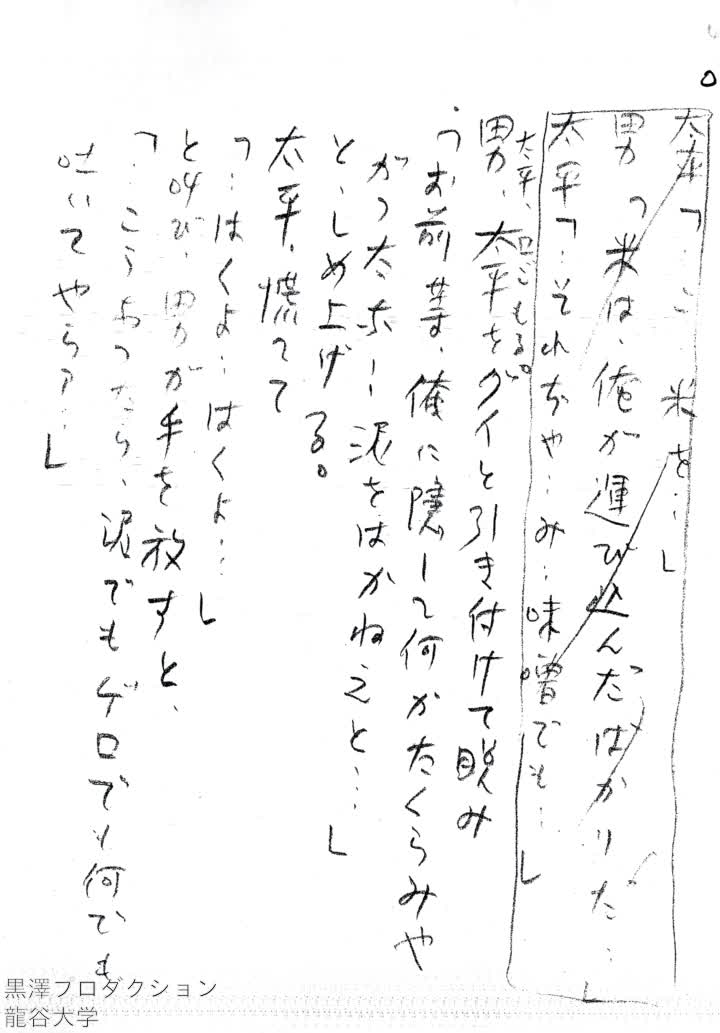 太平「‥こ‥米を‥」
男「米は、俺が運び込んだばかりだ‥」
太平「‥それぢや‥み‥味噌でも‥」
太平、口ごもる。
男、太平をグイと引き付けて睨み
「お前等、俺に隠して何かたくらみや
がつたホ！泥をはかねえと‥」
と、しめ上げる。
太平、慌てて
「‥はくよ‥はくよ‥」
と叫び、男が手を放すと、
「‥こうなつたら、泥でもゲロでも何でも
吐いてやらァ‥」
黒澤プロダクション
龍谷大学